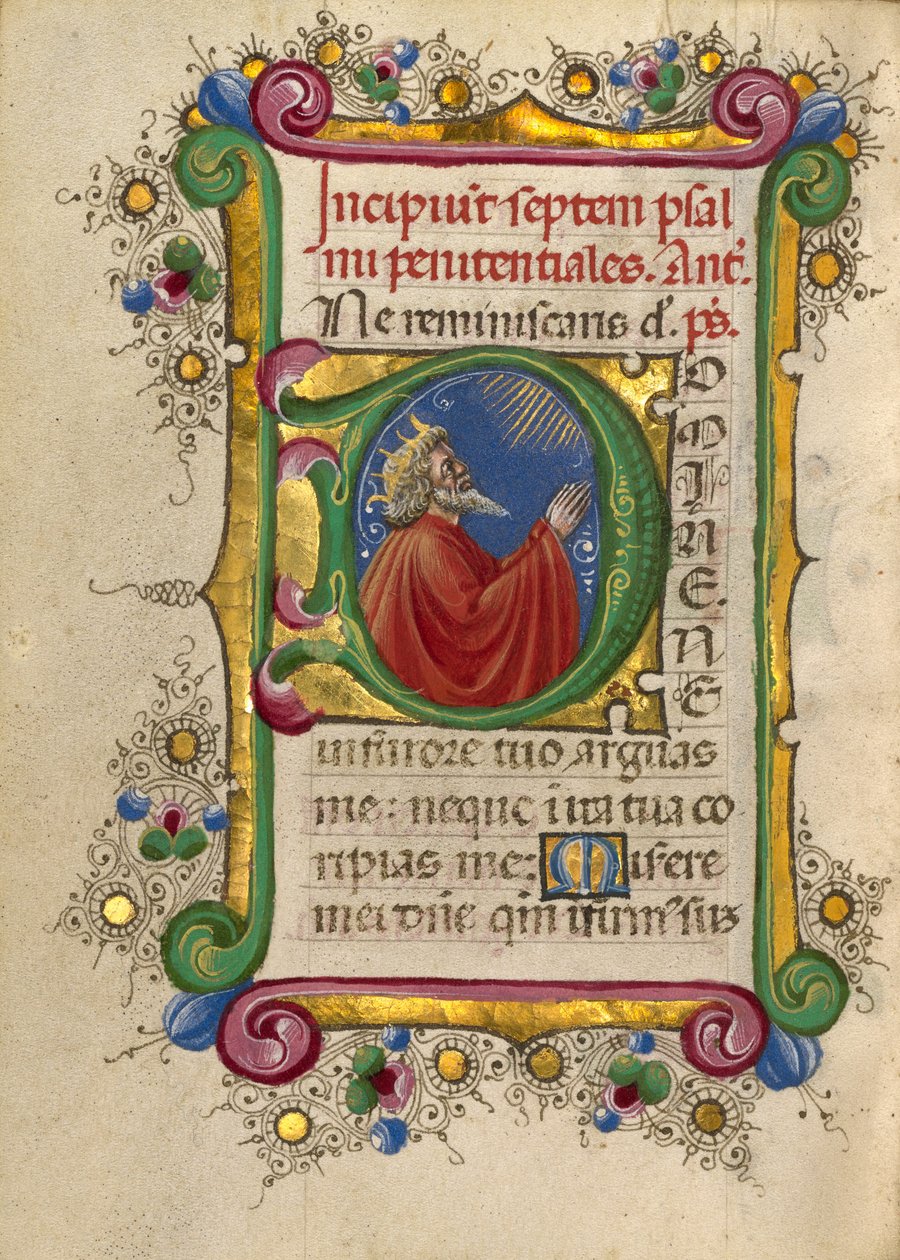 Incipiūt septem psal
mi penitentiales. Ant'.
Ne reminiscaris d'. ps.
DOMINE.
NE
in furore tuo arguas
me: neque in ira tua co
rripias me: Misere
mei dn̄e qm̄ ifirm' sus